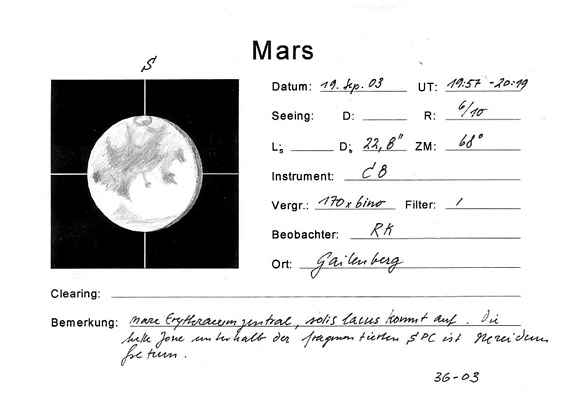 Mars
S
Datum: 19. Sep. 03 UT: 19:57 - 20:19
Seeing: D: R: 6/10
Ls: D: 22,8" ZM: 68°
Instrument: C8
Vergr.: 170x bino Filter: /
Beobachter: RK
Ort: Gailenberg
Clearing:
Bemerkung: Mare Erythraeum zentral, solis lacus kommt auf. Die
helle Zone unterhalb der fragmentierten SPC ist Nereidum
fretum.
36-03